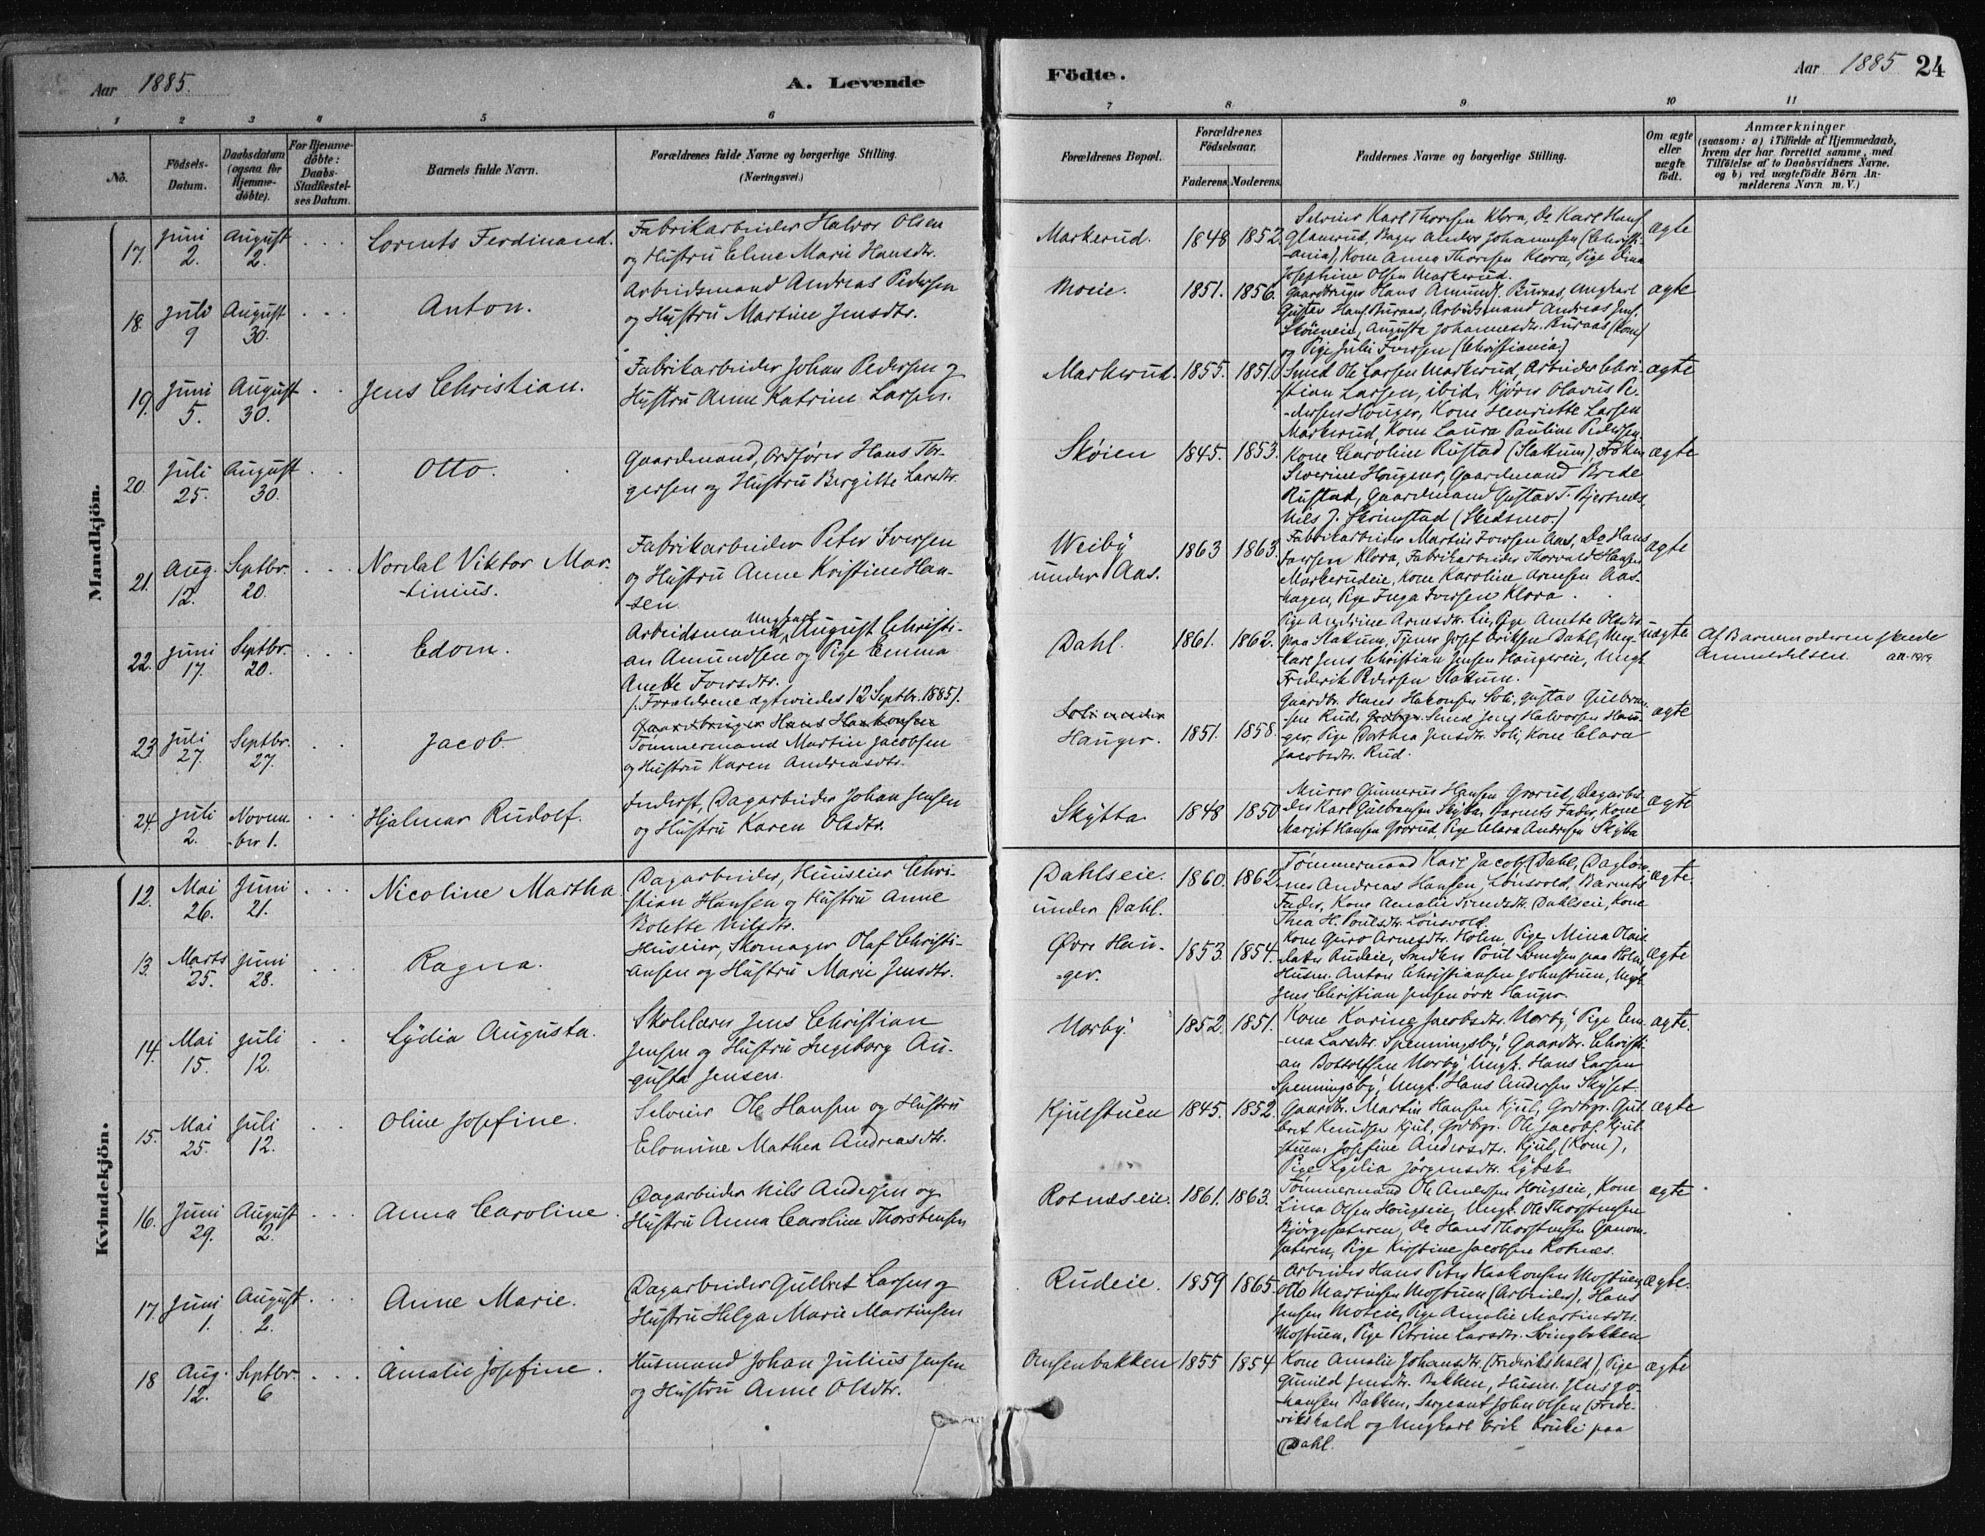 Aar 1885.
A. Levende
Födte.
Aar 1885
24
1 2 3 4 5 6 7 8 9 10 11
No.
Födsels-
Datum.
Daabsdatum
(ogsaa for
Hjemme-
döbte).
For Hjemme-
döbte:
Daabs-
Stadfæstel-
ses Datum.
Barnets fulde Navn.
Forældrenes fulde Navne og borgerlige Stilling.
(Næringsvei.)
Forældrenes Bopæl.
Forældrenes
Födselsaar.
Faderens. Moderens.
Faddernes Navne og borgerlige Stilling.
Om ægte
eller
uægte
født.
Anmærkninger
(saasom: a) i Tilfælde af Hjemmedaab,
hvem der har forrettet samme, med
Tilföielse af to Daabsvidners Navne.
og b) ved uægtefödte Börn An-
melderens Navn m. V.)
Mandkjön.
17. Juni 2. August 2. Lorents Ferdinand.
Fabrikarbeider Halvor Olsen
og Hustru Eline Marie Hansdtr.
Markerud. 1848 1852.
Selveier Karl Thoresen Klora, Do Karl Hans
Glamerud, Bager Anders Johannesen (Christi-
ania), Kone Anna Thoresen Klora, Pige Dina
Josephine Olsen Markerud.
ægte
18. Juli 9 August 30. Anton.
Arbeidsmand Andreas Pedersen
og Hustru Martine Jensdtr.
Moeie. 1851. 1856.
Gaardbruger Hans Amunds. Buraas, Ungkarl
Gustav Hans Buraas, Arbeidsmand Andreas Jens.
Skøieneie, Augusta Johannesdtr. Buraas (Kone)
og Pige Julie Iversen (Christiania)
ægte
19. Juni 5. August 30. Jens Christian.
Fabrikarbeider Johan Pedersen og
Hustru Anne Katrine Larsen.
Markerud. 1855. 1851.
Smed Ole Larsen Markerud, Arbeider Chri-
stian Larsen, ibid, Kjører Olavus Pe-
dersen Houger, Kone Henriette Larsen
Markerud, Kone Laura Pauline Pedersen
ægte
20 Juli 25. August 30. Otto.
Gaardmand, Ordfører Hans Tor-
gersen og Hustru Bergitte Larsdtr.
Skøien 1845. 1853.
Kone Caroline Rustad (Slattum), Frøken
Severine Hougens, Gaardmand Brede
Rustad, Gaardmand Gustav T. Bjertnes
Nils J. Skrimstad (Skedsmo.)
ægte
21. Aug. 12. Septbr. 20. Nordal Viktor Mar-
tinius.
Fabrikarbeider Peter Iversen
og Hustru Anne Kristine Han-
sen.
Weiby
under Aas. 1863 1863.
Fabrikarbeider Martin Iversen Aas, Do Hans
Iversen Klora, Fabrikarbeider Thorvald Hansen
Markerudeie, Kone Karoline Arnesen Aas-
hagen, Pige Inga Iversen Klora.
ægte
22. Juni 17. Septbr. 20. Edom.
Ungkarl
Arbeidsmand, August Christi-
an Amundsen og Pige Emma
Anette Iversdtr.
(Forældrene ægteviedes 12 Septbr. 1885).
Dahl. 1861. 1862.
Pige Andrine Arnesdtr. Lie, Pige Anette Olsdtr.
paa Slatum, Tjener Josef Eriksen Dahl, Ung-
karl Jens Christian Jensen Haugereie, Ungk.
Frederik Pedersen Slatum.
uægte
Af Barnemoderen skede
Anmeldelsen
23 Juli 27. Septbr. 27. Jacob
Gaardbruger Hans Haakonsen
Tømmermand Martin Jacobsen
og Hustru Karen Andreasdtr.
Soli under
Hauger. 1851. 1858.
Gaardbr. Hans Hakonsen Soli, Gustav Gulbran-
sen Rud, Smed Jens Halvorsen Hau-
ger, Pige Dorthea Jensdtr. Soli, Kone Clara
Jacobsdtr. Rud.
ægte
24. Juli 2. Novem-
ber 1. Hjalmar Rudolf.
Inderst, Dagarbeider Johan Jensen
og Hustru Karen Olsdtr.
Skytta 1848 1850
Murer Gunnerus Hansen Grorud, Dagarbei-
der Karl Gulbransen Skytta, Barnets Fader, Kone
Margit Hansen Grorud, Pige Clara Andresen Skytta
ægte
Kvindekjön.
12. Mai 26. Juni 21. Nicoline Martha
Dagarbeider, Huuseier Chri-
stian Hansen og Hustru Anne
Bolette Nilsdtr.
Dahlseie
under Dahl. 1860. 1862.
Tømmermand Karl Jacobs. Dahl, Dagløn-
ner Andreas Hansen, Lønsvold, Barnets
Fader, Kone Amalie Dahlseie, Kone
Thea H. Poulsdtr. Lønsvold.
ægte
13. Marts 25. Juni 28. Ragna.
Huseier, Skomager Olaf Christi-
ansen og Hustru Marie Jensdtr.
Øvre Hau-
ger. 1853. 1854.
Kone Guro Arnesdtr. Holm, Pige Mina Olais-
datter Rudeie, Snedker Poul Svendsen paa Holm,
Husm. Anton Christiansen Johnstuen, Ungk.
Jens Christian Jensen øvre Hauger.
ægte
14. Mai 15. Juli 12. Lydia Augusta.
Skolelærer Jens Christian
Jensen og Hustru Ingeborg Au-
gusta Jensen.
Morby 1852. 1851.
Kone Karine Jacobsdtr. Morby, Pige Em-
ma Larsdtr. Spenningsby, Gaardbr. Christi-
an Bottolfsen Morby, Ungk. Hans Larsen
Spenningsby, Ungk. Hans Andersen Skyset
ægte.
15. Mai 25. Juli 12. Oline Josefine.
Selveier Ole Hansen og Hustru
Elomine Mathea Andreasdtr.
Kjulstuen 1845. 1852.
Gaardbr. Martin Hansen Kjul, Grdbrgr. Gul-
bret Knudsen Kjul, Grdbrgr. Ole Jacobs. Kjul-
stuen, Josefine Andersdtr. Kjul, (Kone),
Pige Lydia Jørgensdtr. Lybæk
ægte
16. Juni 29. August 2. Anna Caroline
Dagarbeider Nils Andersen og
Hustru Anna Caroline Thorstensen
Rotnæseie. 1861. 1863.
Tømmermand Ole Andersen Hougseie, Kone
Lina Olsen Hougseie, Ungk. Ole Thorstensen
Bjørgesæteren, Do Hans Thorstensen
sæteren, Pige Kirstine Jacobsen Rotnæs.
ægte
17. Juni 1. August 2. Anne Marie.
Dagarbeider Gulbret Larsen og
Hustru Helga Marie Martinsen
Rudeie 1859 1865.
Arbeider Hans Peter Haakonsen Mostuen
Otto Martinsen Mostuen (Arbeider), Hans
Jensen Moseie, Pige Amalie Martinsdtr.
Mostuen, Pige Petrine Larsdtr. Svingbakken
ægte.
18 Aug. 12. Septbr. 6 Amalie Josefine.
Husmand Johan Julius Jensen
og Hustru Anne Olsdtr.
Omsenbakken 1855 1854
Kone Amalie Johansdtr. (Frederikshald), Pige
Gunild Jensdtr. Bakken, Husm. Jens Jo-
hansen Bakken, Sergeant John Olsen (Frede-
rikshald og Ungkarl Erik Kruke paa
Dahl.
ægte